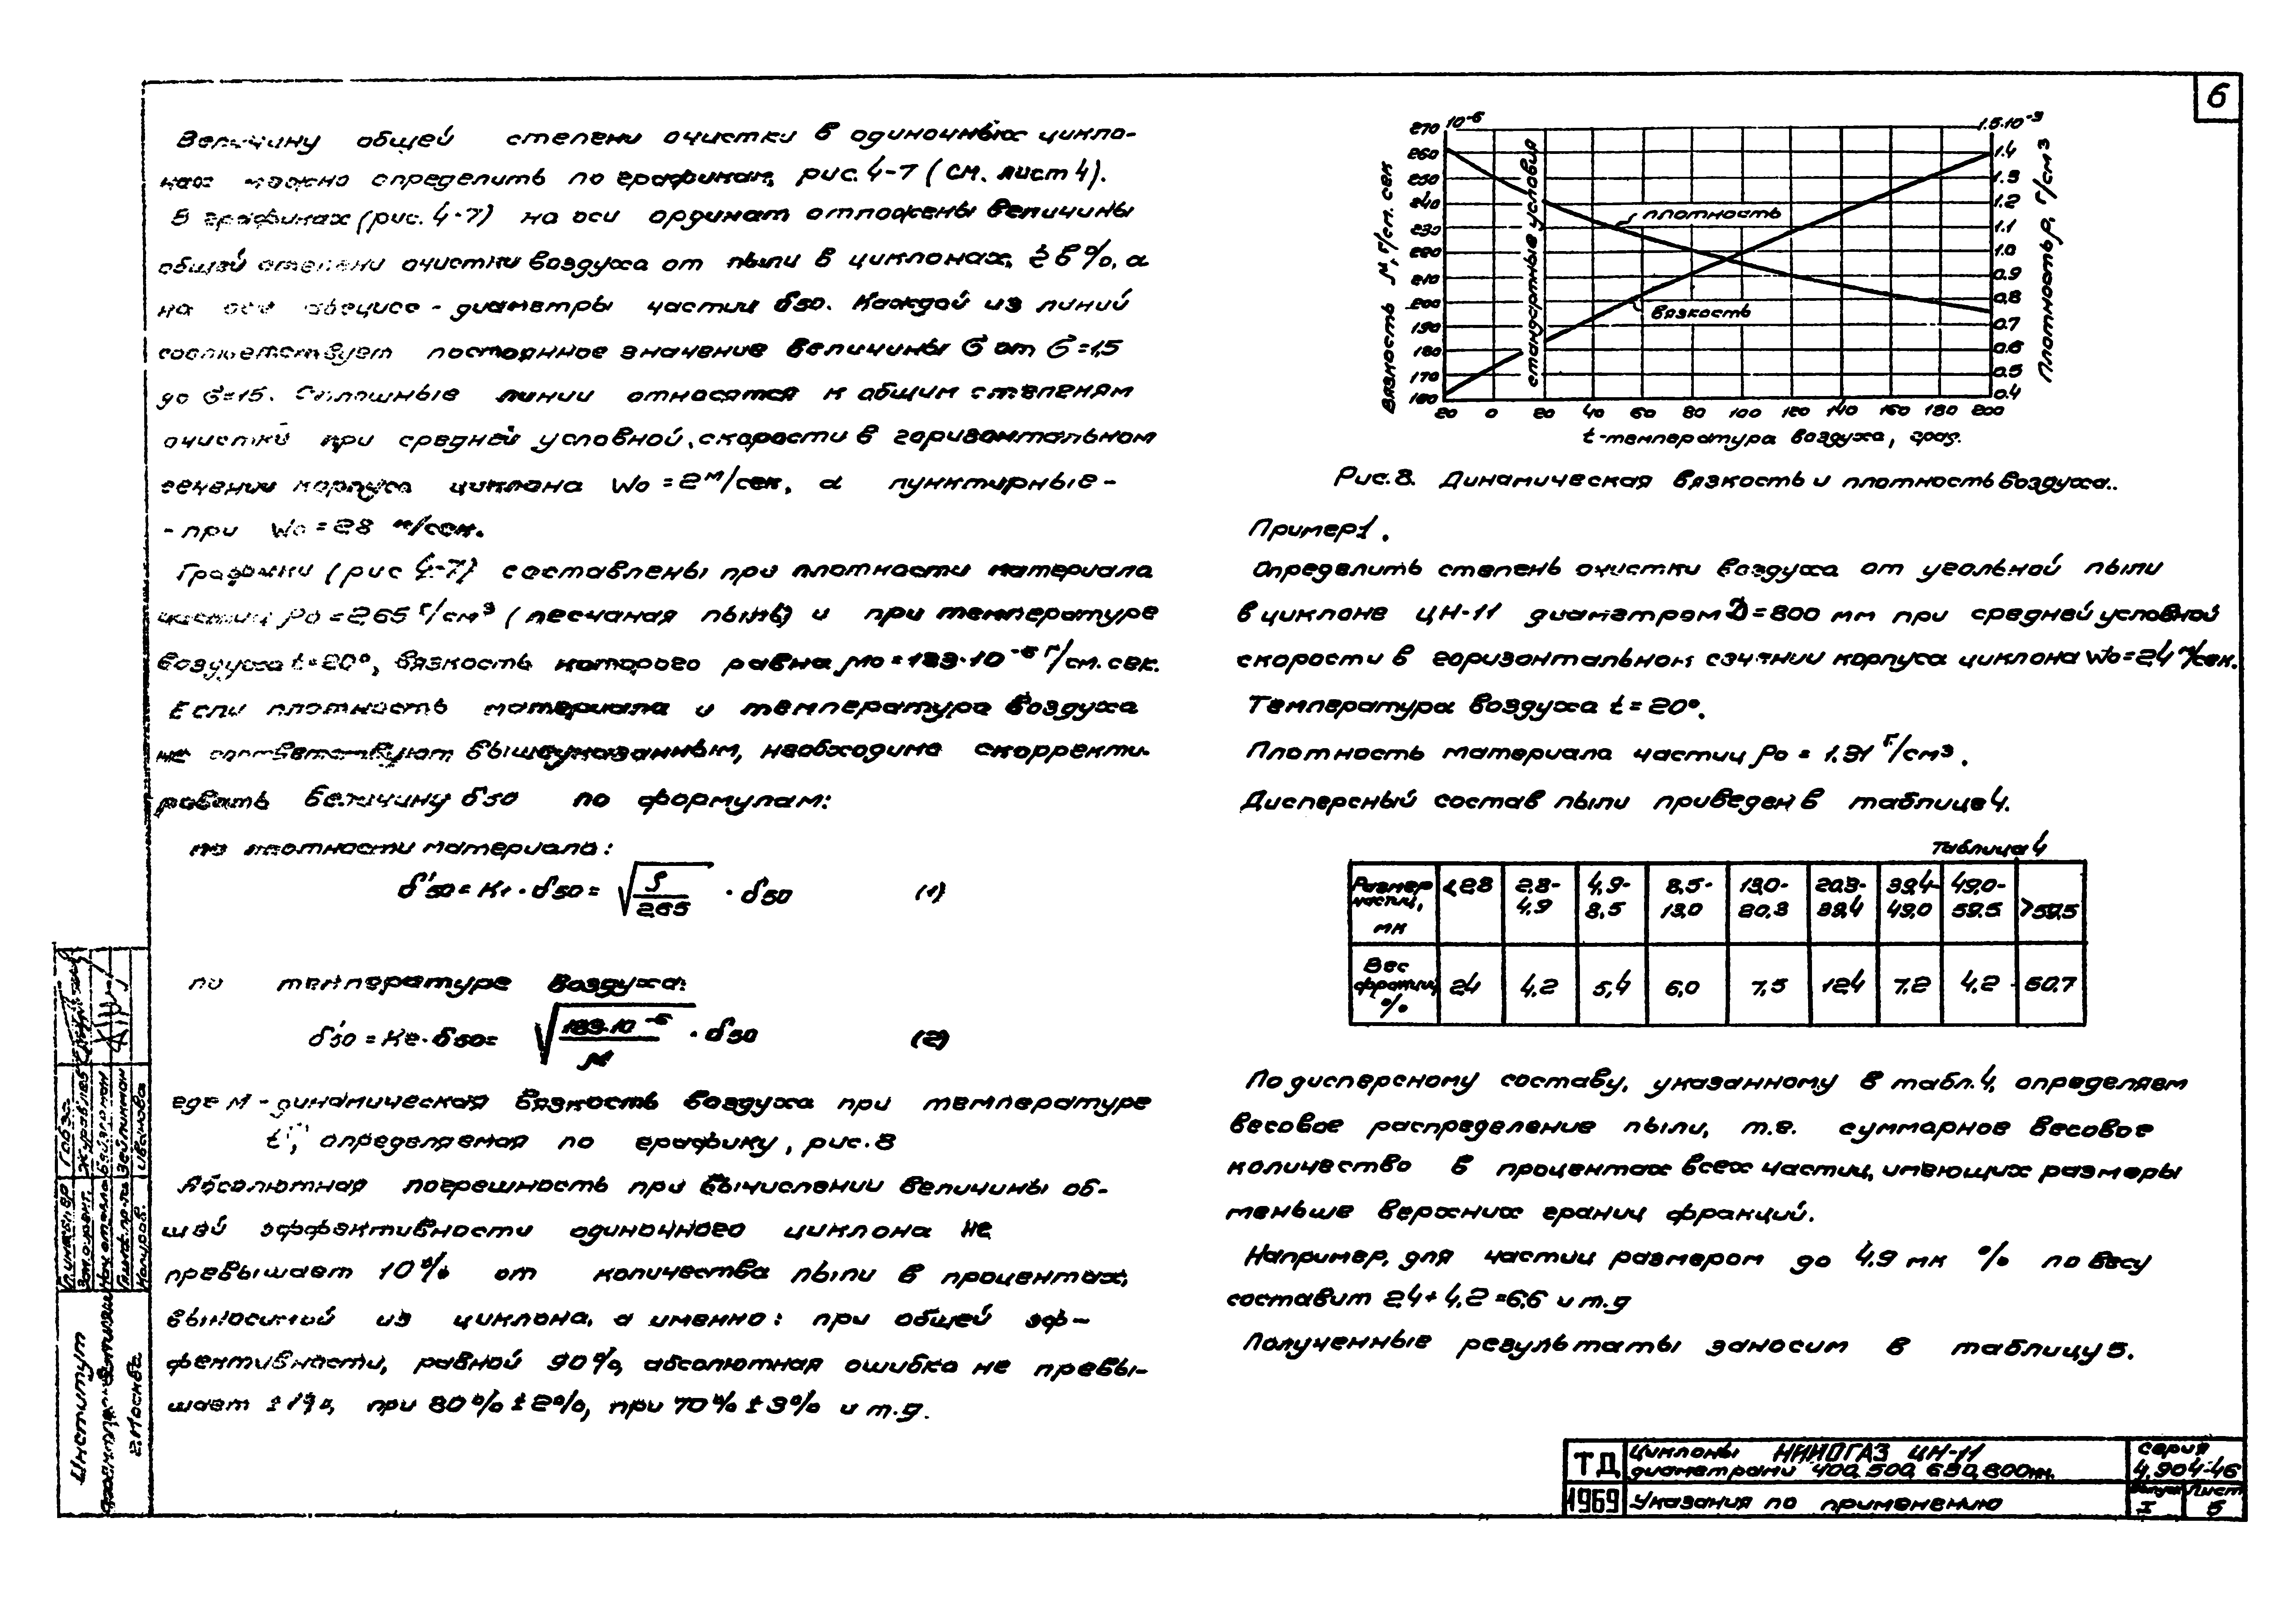 6
Величину общей степени очистки в одиночных цикло-
нах можно определить по графикам, рис. 4-7 (см. лист 4).
В графиках (рис. 4-7) на оси ординат отложены величины
общей степени очистки воздуха от пыли в циклонах, ε в %, а
на оси абсцисс - диаметры частиц δ50. Каждой из линий
соответствует постоянное значение величины σ от σ=1,5
до σ=15. Сплошные линии относятся к общим степеням
очистки при средней условной скорости в горизонтальном
сечении корпуса циклона Wо = 2 м/сек, а пунктирные -
- при Wо = 28 м/сек.
Графики (рис 4-7) составлены при плотности материала
частиц ρо = 2,65 г/см³ (песчаная пыль) и при температуре
воздуха t=20°, вязкость которого равна μо = 183·10⁻⁶ г/см. сек.
Если плотность материала и температура воздуха
не соответствуют вышеуказанным, необходимо скорректи-
ровать величину δ50 по формулам:
по плотности материала:
δ'50 = К1 · δ50 = √(ρ/2,65) · δ50 (1)
по температуре воздуха:
δ'50 = К2 · δ50 = √(183·10⁻⁶/μ) · δ50 (2)
где М - динамическая вязкость воздуха при температуре
t°, определяемая по графику, рис. 8
Абсолютная погрешность при вычислении величины об-
щей эффективности одиночного циклона не
превышает 10% от количества пыли в процентах,
выносимой из циклона, а именно: при общей эф-
фективности, равной 90%, абсолютная ошибка не превы-
шает ±1%, при 80% ±2%, при 70% ±3% и т.д.
270 10⁻⁶
260
250
240
230
220
210
200
190
180
170
160
Вязкость μ, г/см. сек
стандартные условия
плотность
вязкость
1.5·10⁻³
1.4
1.3
1.2
1.1
1.0
0.9
0.8
0.7
0.6
0.5
0.4
Плотность ρ, г/см³
20 0 20 40 60 80 100 120 140 160 180 200
t-температура воздуха, град.
Рис. 8. Динамическая вязкость и плотность воздуха..
Пример 1.
Определить степень очистки воздуха от угольной пыли
в циклоне ЦН-11 диаметром D=800 мм при средней условной
скорости в горизонтальном сечении корпуса циклона Wо=2,4 м/сек.
Температура воздуха t = 20°.
Плотность материала частиц ρо = 1.31 г/см³.
Дисперсный состав пыли приведен в таблице 4.
Таблица 4
Размер частиц, мк <2,8 2,8-4,9 4,9-8,5 8,5-13,0 13,0-20,3 20,3-39,4 39,4-49,0 49,0-59,5 >59,5
Вес фракции, % 2,4 4,2 5,4 6,0 7,5 12,4 7,2 4,2 50,7
По дисперсному составу, указанному в табл. 4, определяем
весовое распределение пыли, т.е. суммарное весовое
количество в процентах всех частиц, имеющих размеры
меньше верхних границ фракций.
Например, для частиц размером до 4,9 мк % по весу
составит 2,4 + 4,2 = 6,6 и т.д
Полученные результаты заносим в таблицу 5.
ТД Циклоны НИИОГАЗ ЦН-11
диаметрами 400, 500, 630, 800мм.
серия
4.904-46
1969 Указания по применению
Выпуск I Лист 5
Институт
г. Москва
Иванова